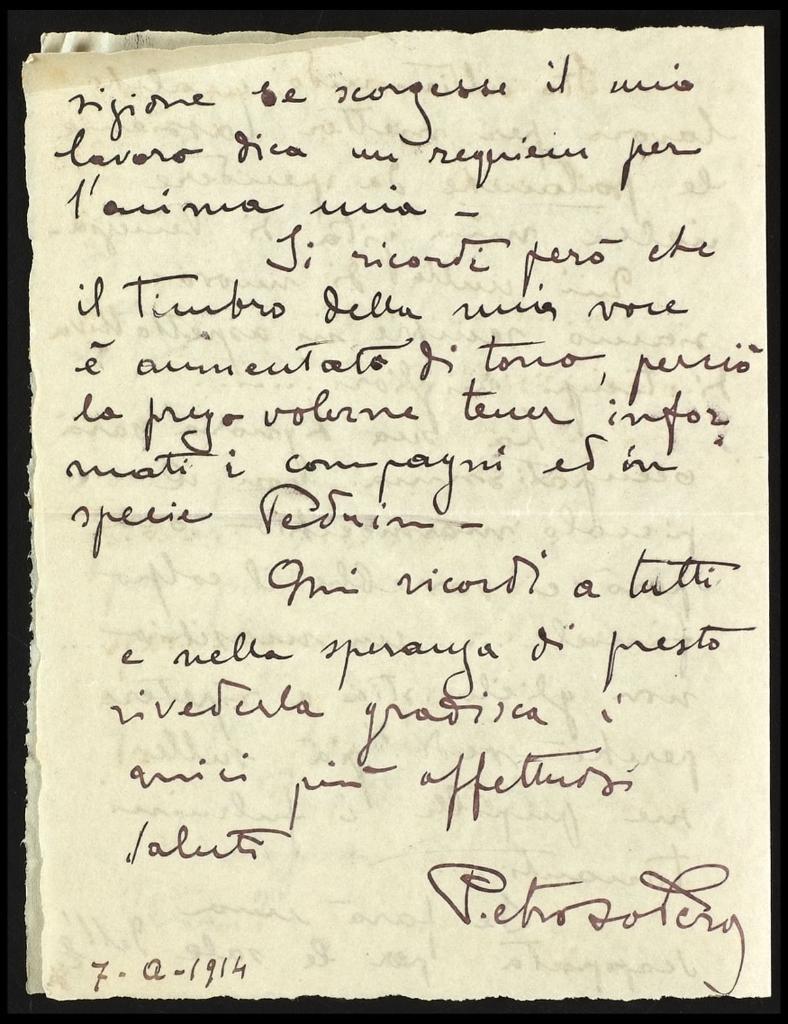 rigione se scorgesse il mio
lavoro dica un requiem per
l'anima mia -
Si ricordi però che
il timbro della mia voce
è aumentato di tono, perciò
la prego volerne tener infor
mati i compagni ed in
specie Pedrin -
Mi ricordi a tutti
e nella speranza di presto
rivederla gradisca i
miei più affettuosi
saluti
7-A-1914